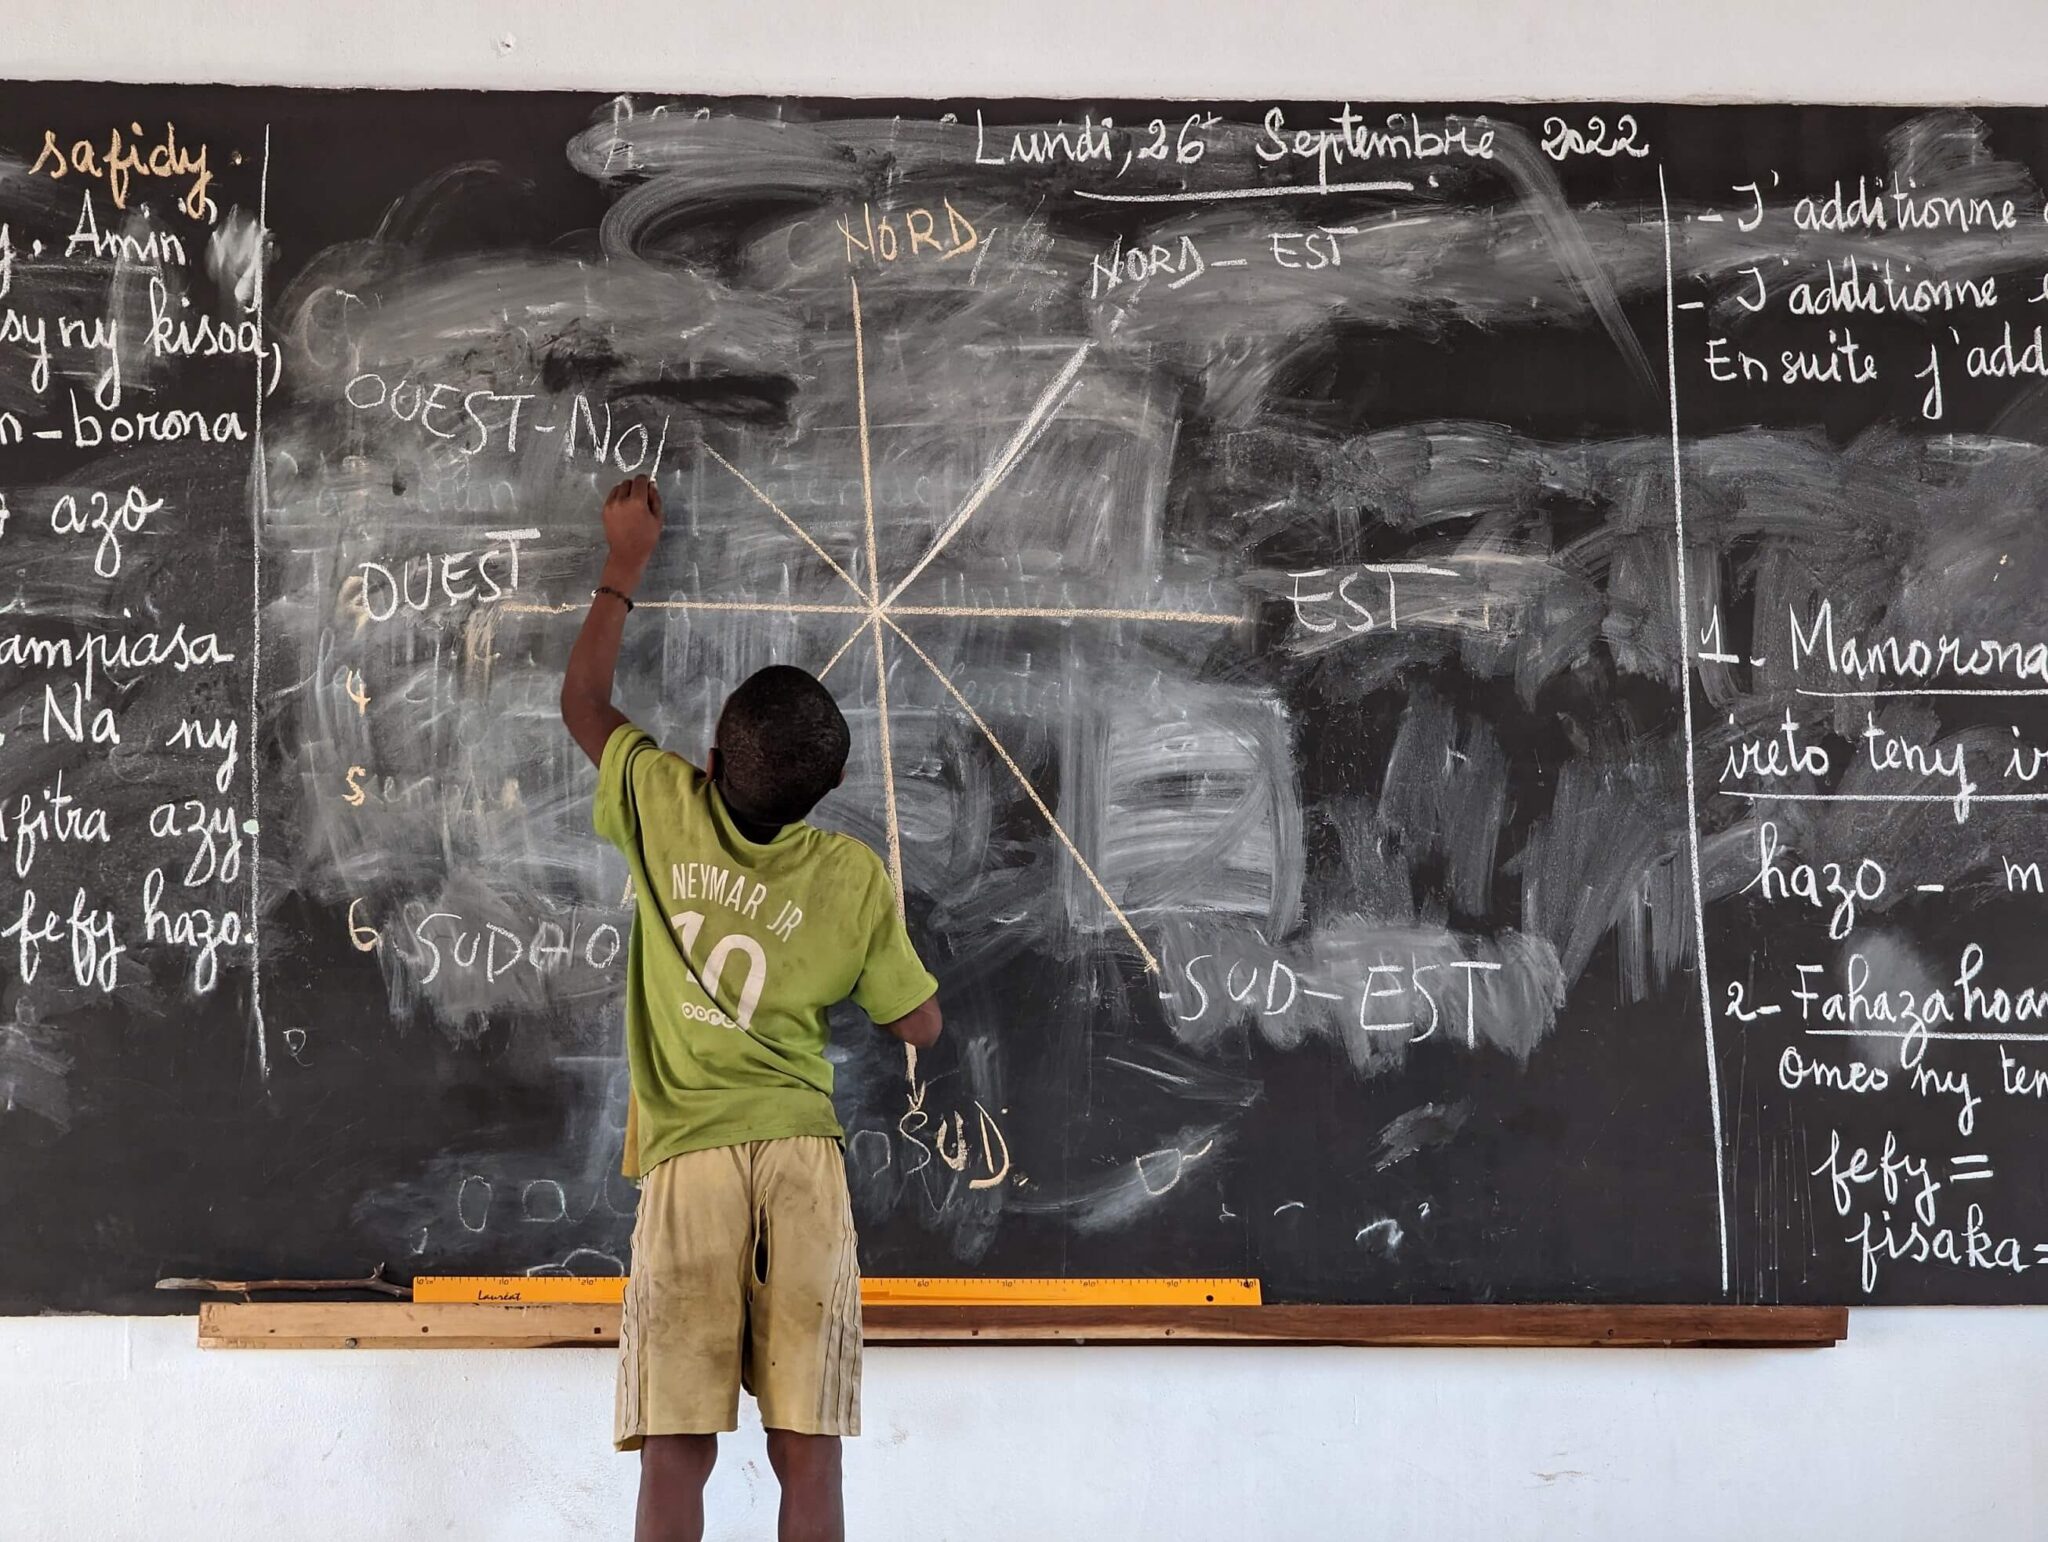 safidy.
Amin'
sy ny kisoa,
n-borona
azo
ampiasa
Na ny
fitra azy.
fefy hazo.
Lundi, 26 Septembre 2022
NORD
NORD-EST
OUEST-NO
OUEST
EST
4
5
6
SUD-O
SUD-EST
SUD.
NEYMAR JR
10
- J'additionne
- J'additionne
Ensuite j'add
1- Mamorona
ireto teny ir
hazo - m
2- Fahazahoan
omeo ny ten
fefy =
fisaka =
Lauréat